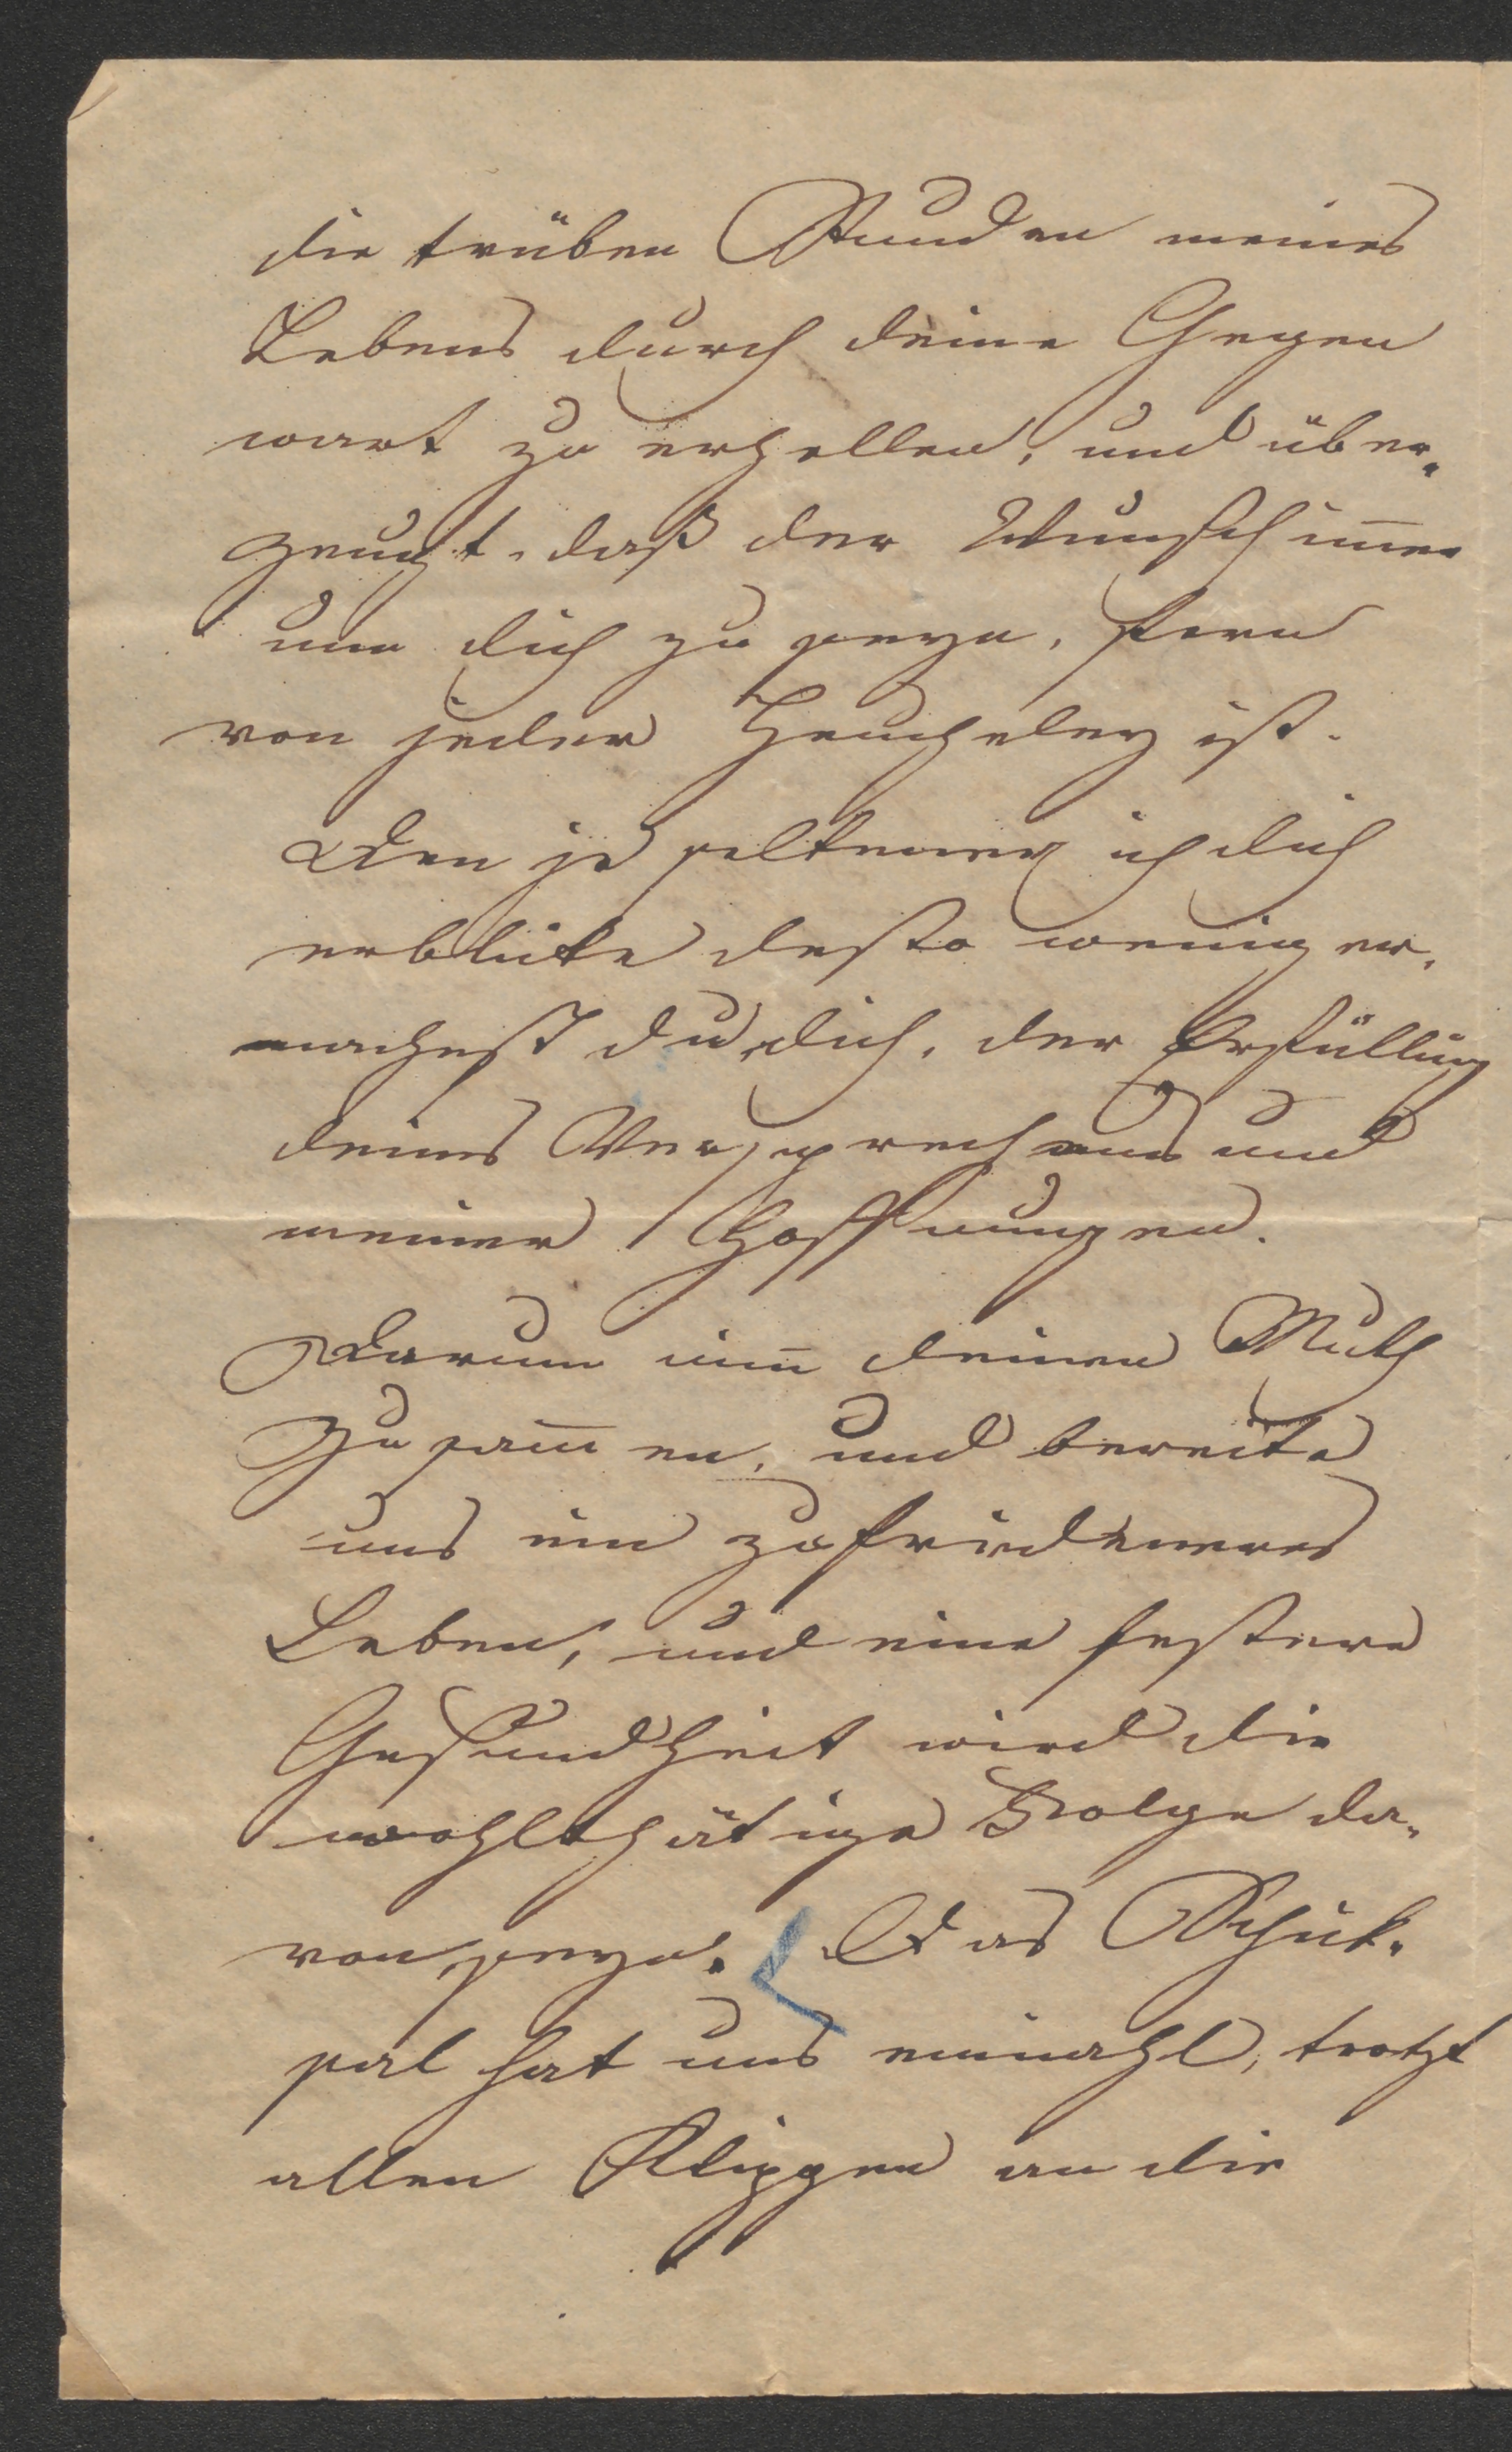 die trüben Stunden meines
Lebens durch deine Gegen
wart zu erhellen, und über-
zeugt, daß der Wunsch im̅er
um dich zu seyn, fern
von jeder Heucheley ist.
Den je seltener ich dich
erblicke desto weniger,
nachest du dich, der Erfüllung
deines Versprechens und
meiner Hoffnungen.
Darum nim̅ deinen Muth
zusam̅en, und bereite
uns ein zufriedeneres
Leben, und eine festere
Gesundheit wird die
wohlthätige Folge da-
von seyn. Das Schik-
sal hat uns einmahl, trotzt
allen Klippen an die